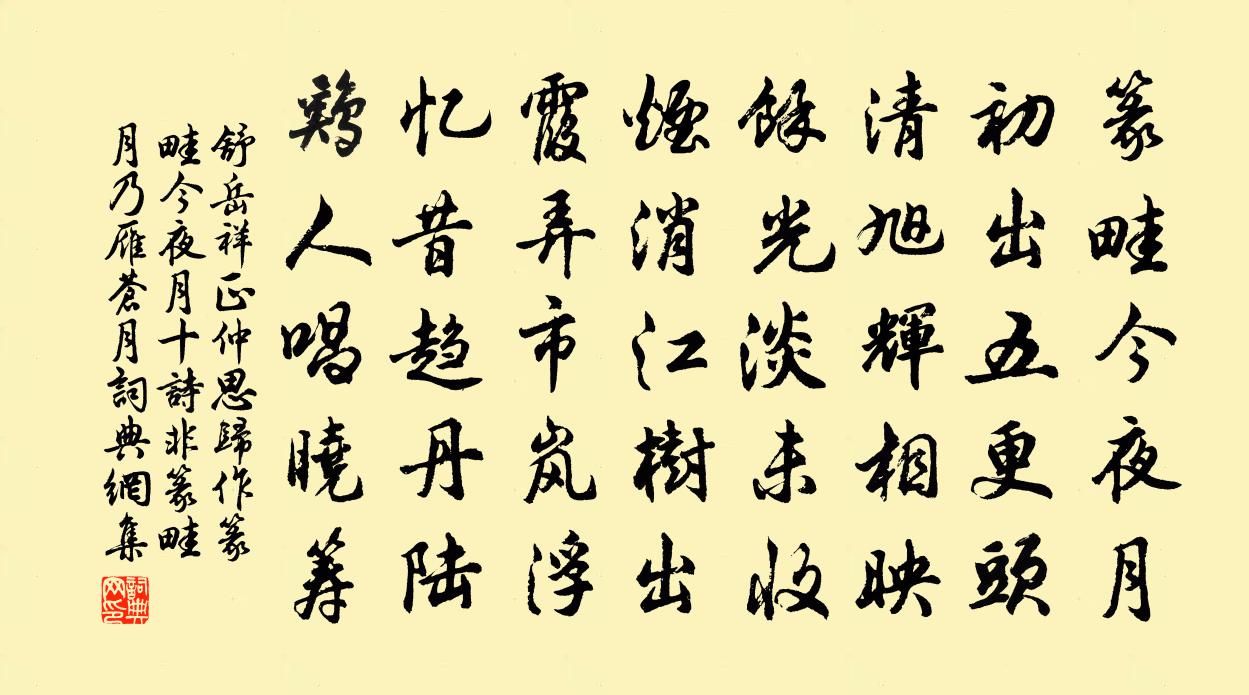 篆畦今夜月
初出五更頭
清旭輝相映
餘光淡未收
煙消江樹出
霞弄市岚浮
忆昔趋丹陆
鶏人唱曉筹
舒岳祥正仲思歸作篆
畦今夜月十詩非篆畦
月乃雁蒼月詞典網集
詞典网印